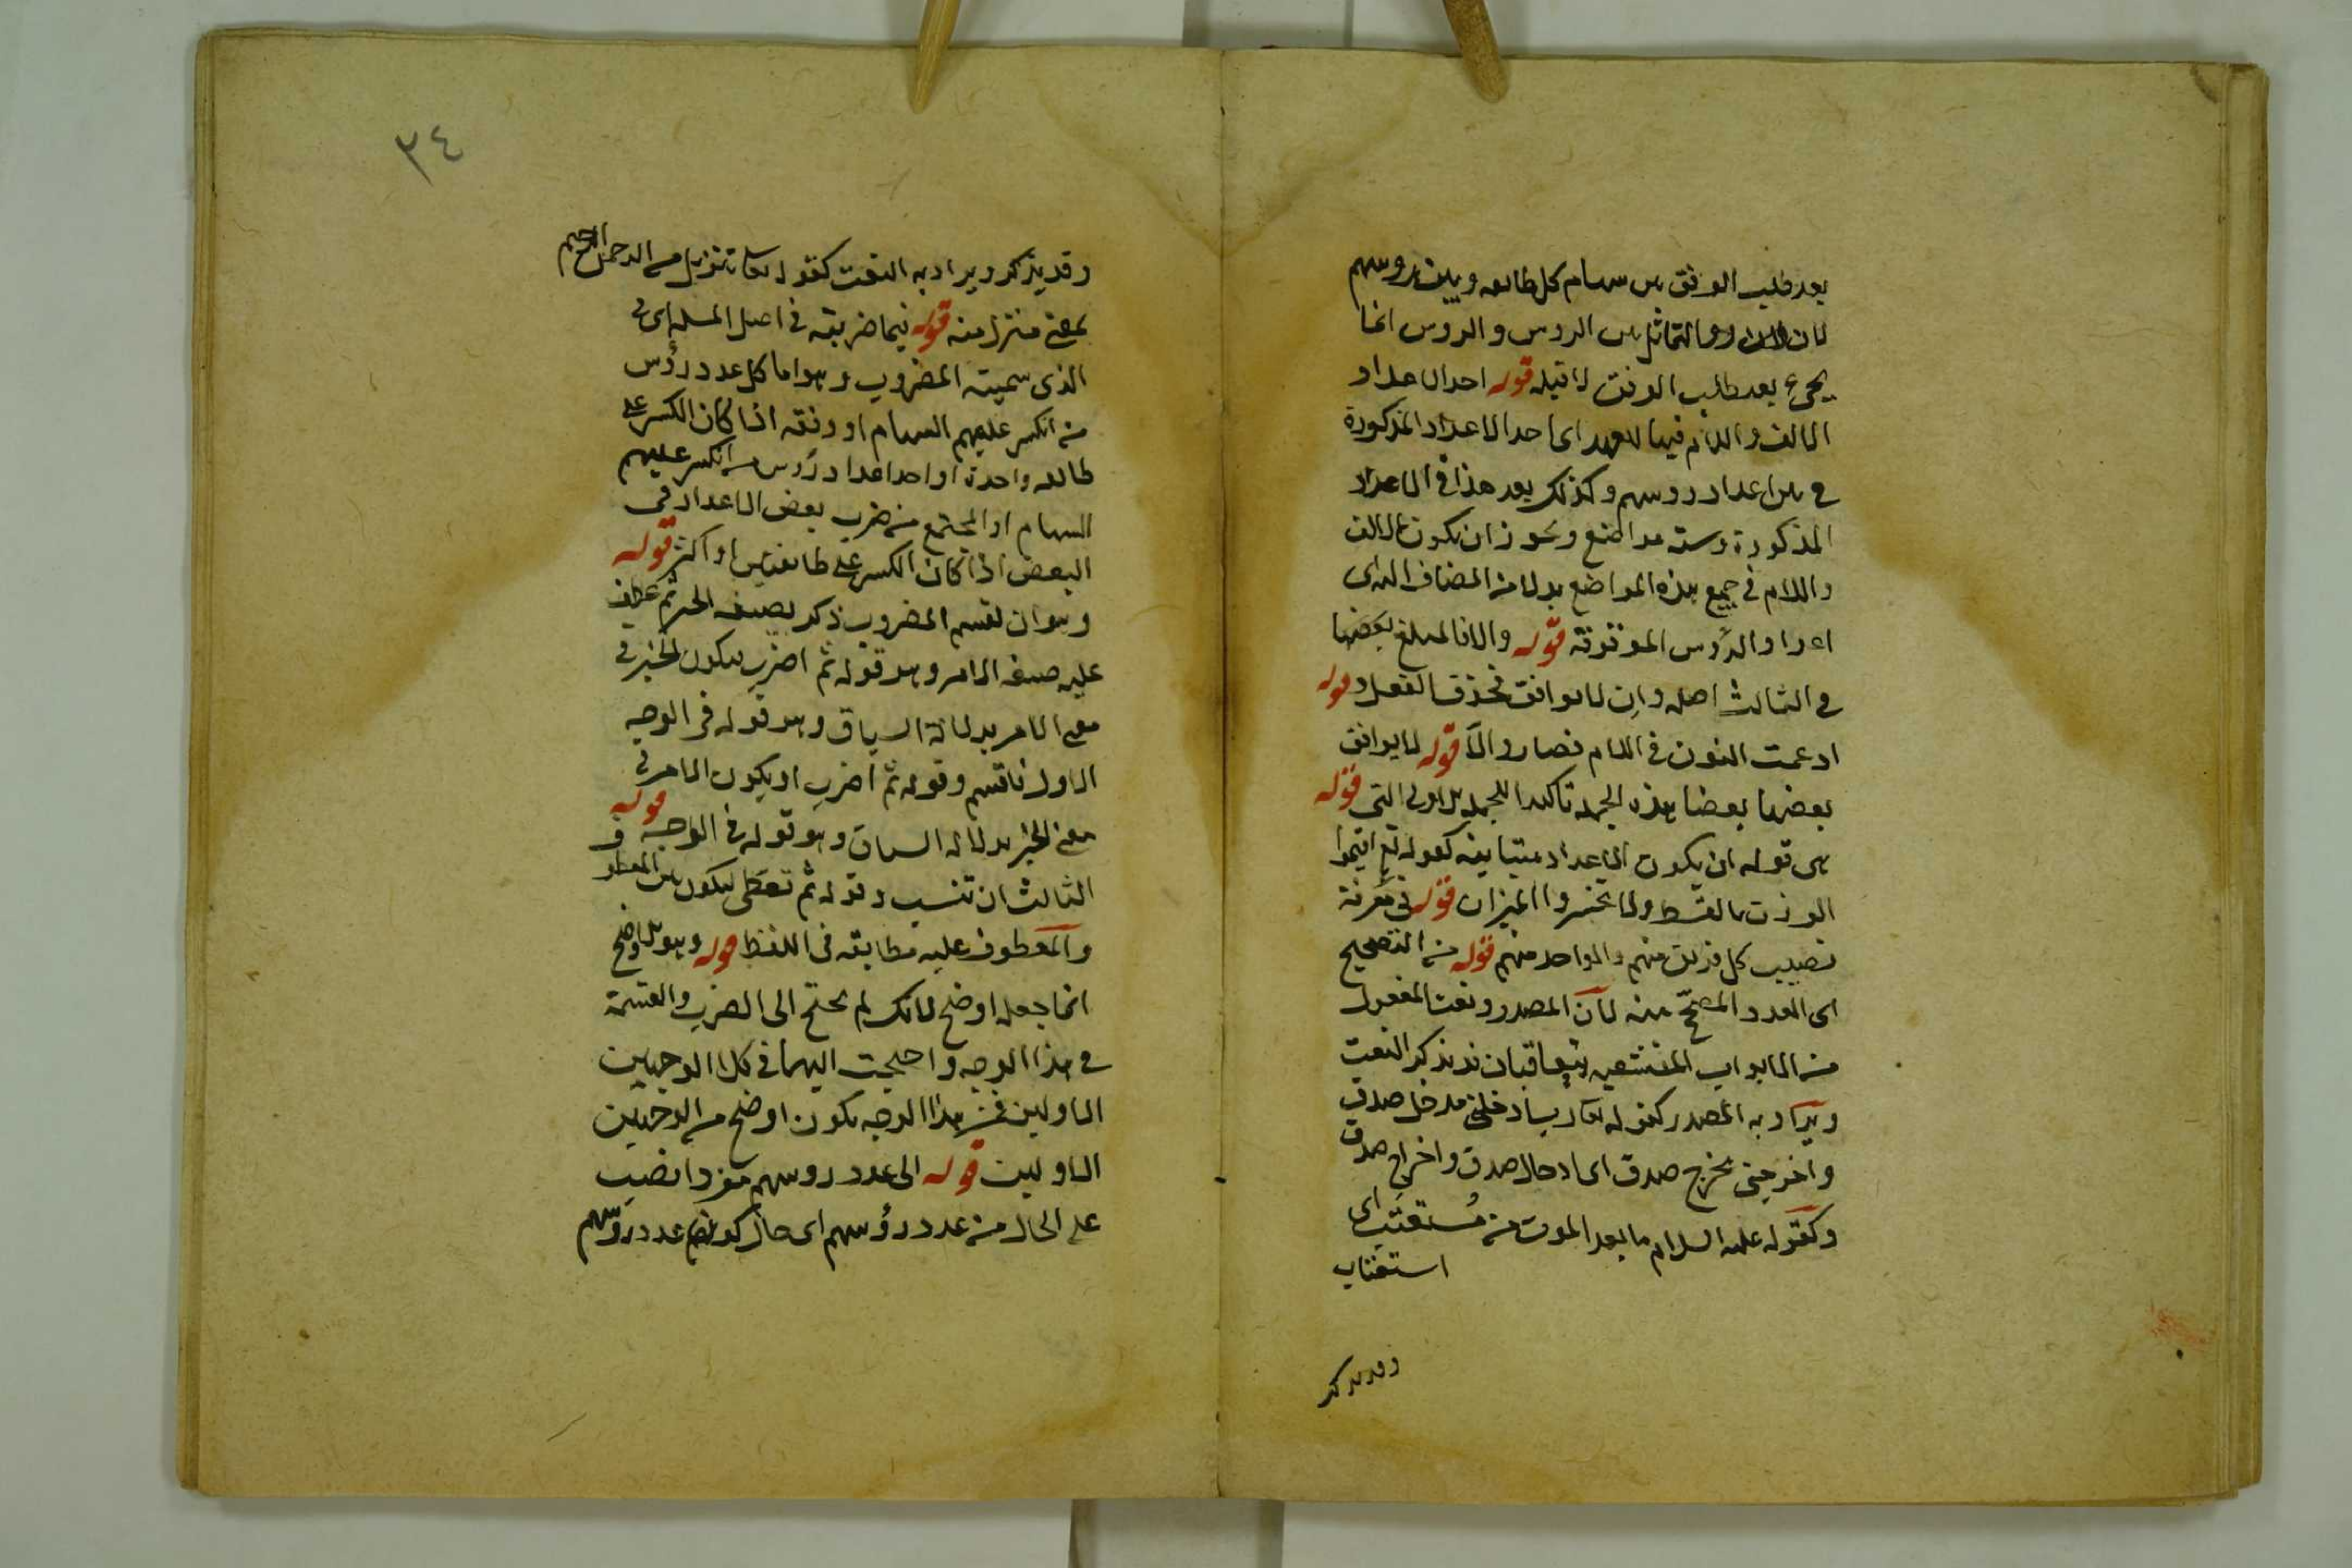 بعد طلب الوفق بين سهام كل طائفة وبين روسهم
لان التماثل بين الروس والروس انما
يجيء بعد طلب الوفق لا قبله قوله احد الاعداد
الالف واللام فيها للعهد اى احد الاعداد المذكورة
في بين اعداد روسهم وكذلك بعد هذا في الاعداد
المذكورة وستة مواضع ويجوز ان يكون الالف
واللام في جميع هذه المواضع بدلا من المضاف اليه اى
اعداد الرؤس الموقوفة قوله والا فالمبلغ بعضها
في الثالث اصله وان لا يوافق فحذف الفعل و قوله
ادغمت النون في اللام فصار والا قوله لا يوافق
بعضها بعضا هذه الجملة تاكيدا للجملة الاولى التي قوله
هى قوله ان يكون الاعداد متباينة كقوله تع اقيموا
الوزن بالقسط ولا تخسروا الميزان قوله في معرفة
نصيب كل فريق منهم والواحد منهم قوله من التصحيح
اى العدد المصحح منه لان المصدر ونعت المفعول
من الابواب المنشعبه يتعاقبان قد يذكر النعت
ويراد به المصدر كقوله تعا رب ادخلنى مدخل صدق
واخرجنى مخرج صدق اى ادخال صدق واخراج صدق
وكقوله عليه السلام ما بعد الموت من مستعتب اى
استعتاب
وقد يذكر
٣٤
وقد يذكر ويراد به النعت كقوله تعا تنزيل من الرحمن الرحيم
بمعنى منزل منه قوله فيما ضربته في اصل المسئله اى في
الذى سميته المضروب وهو اما كل عدد رؤس
من انكسر عليهم السهام او وفقه اذا كان الكسر على
طائفه واحدة او احد اعداد رؤس من انكسر عليهم
السهام او المجتمع من ضرب بعض الاعداد في
البعض اذا كان الكسر على طائفتين او اكثر قوله
وهو ان تقسم المضروب ذكر بصيغه الخبر ثم عطف
عليه صيغه الامر وهو قوله ثم اضرب ليكون الخبر في
معنى الامر بدلالة السياق وهو قوله في الوجه
الاول فاقسم وقوله ثم اضرب او يكون الامر في
معنى الخبر بدلاله السياق وهو قوله في الوجه قوله
الثالث ان تنسب وقوله ثم تعطى ليكون بين المعطو
والمعطوف عليه مطابقه في اللفظ قوله وهو الاوضح
انما جعله اوضح لانك لم تحتج الى الضرب والقسمة
في هذا الوجه واحتجت اليهما في كلا الوجهين
الاولين فمن هذا الوجه يكون اوضح من الوجهين
الاولين قوله الى عدد روسهم مفردا نصب
على الحال من عدد رؤسهم اى حال كون عدد رؤسهم